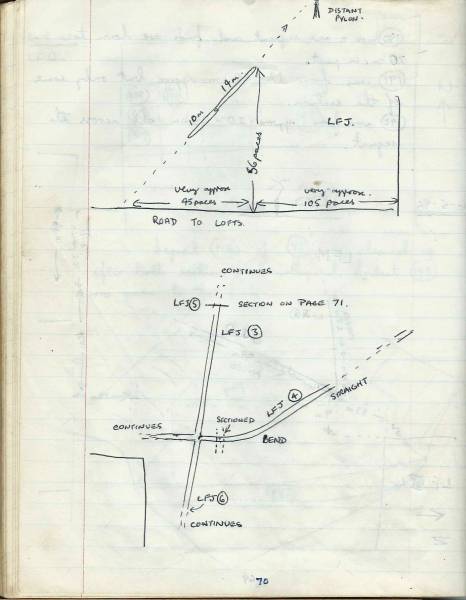 DISTANT
PYLON.
14m
10m
86 paces
LFJ.
very approx
45 paces
very approx.
105 paces
ROAD TO LOFTS.
CONTINUES
LFJ 5
SECTION ON PAGE 71.
LFJ 3
LFJ 4
STRAIGHT
SECTIONED
CONTINUES
BEND
LFJ 6
CONTINUES
70